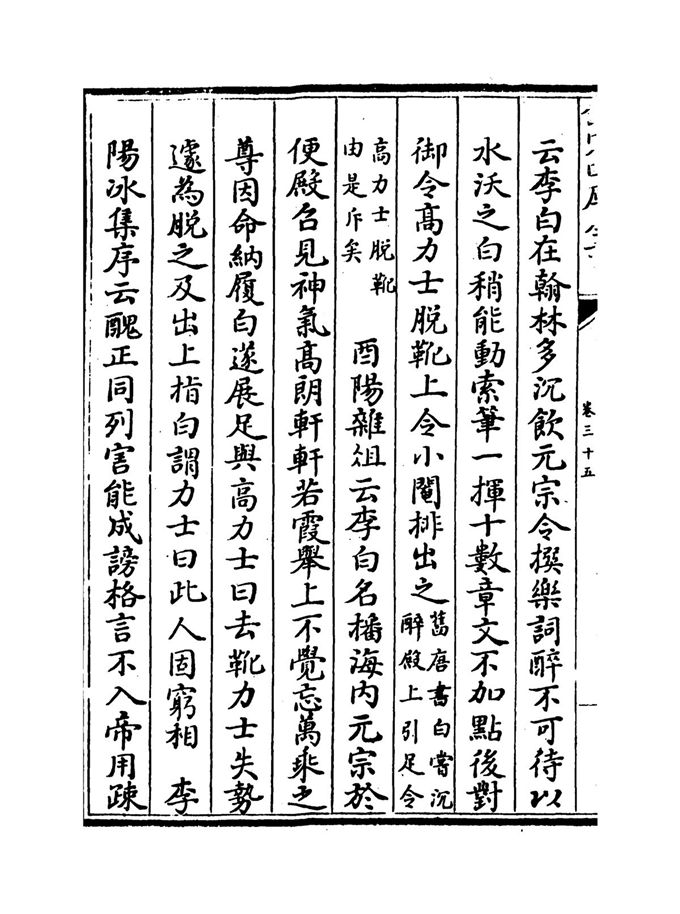 云李白在翰林多沉飲元宗令撰樂詞醉不可待以
水沃之白稍能動索筆一揮十數章文不加點後對
御令髙力士脱靴上令小閹排出之舊唐書白嘗沉
醉殿上引足令
高力士脱靴
由是斥矣
酉陽雜俎云李白名播海内元宗於
便殿召見神氣髙朗軒軒若霞舉上不覺忘萬乗之
尊因命納履白遂展足與高力士曰去靴力士失勢
遽為脱之及出上指白謂力士曰此人固窮相　李
陽冰集序云醜正同列害能成謗格言不入帝用疎
卷三十五